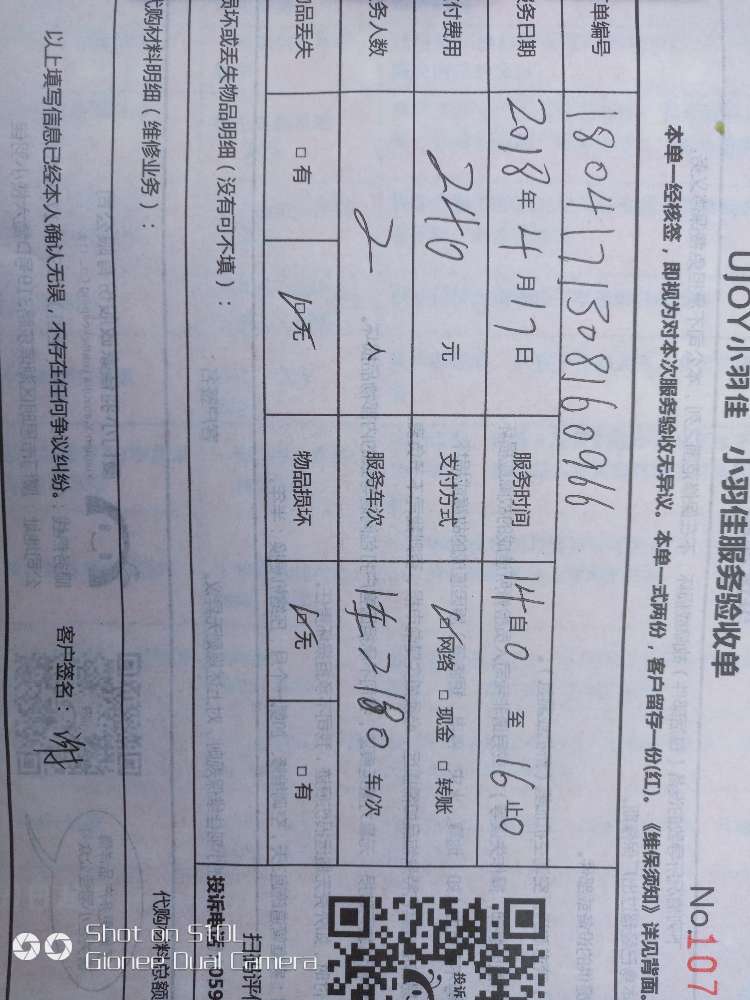 UJOY小羽佳 小羽佳服务验收单
No.107
本单一经核签，即视为对本次服务验收无异议。本单一式两份，客户留存一份(红)。《维保须知》详见背面。
单编号 180417130816096 6
务日期 2018年4月17日 服务时间 14自0 至 16止0
付费用 240 元 支付方式 ☑网络 □现金 □转账
务人数 2 人 服务车次 1车2180 车/次
品丢失 □有 ☑无 物品损坏 ☑无 □有
损坏或丢失物品明细（没有可不填）：
投诉电话 059
扫码评价
投诉
代购材料明细（维修业务）：
代购材料总额
以上填写信息已经本人确认无误，不存在任何争议纠纷。
客户签名：谢
Shot on S10L
Gionee Dual Camera